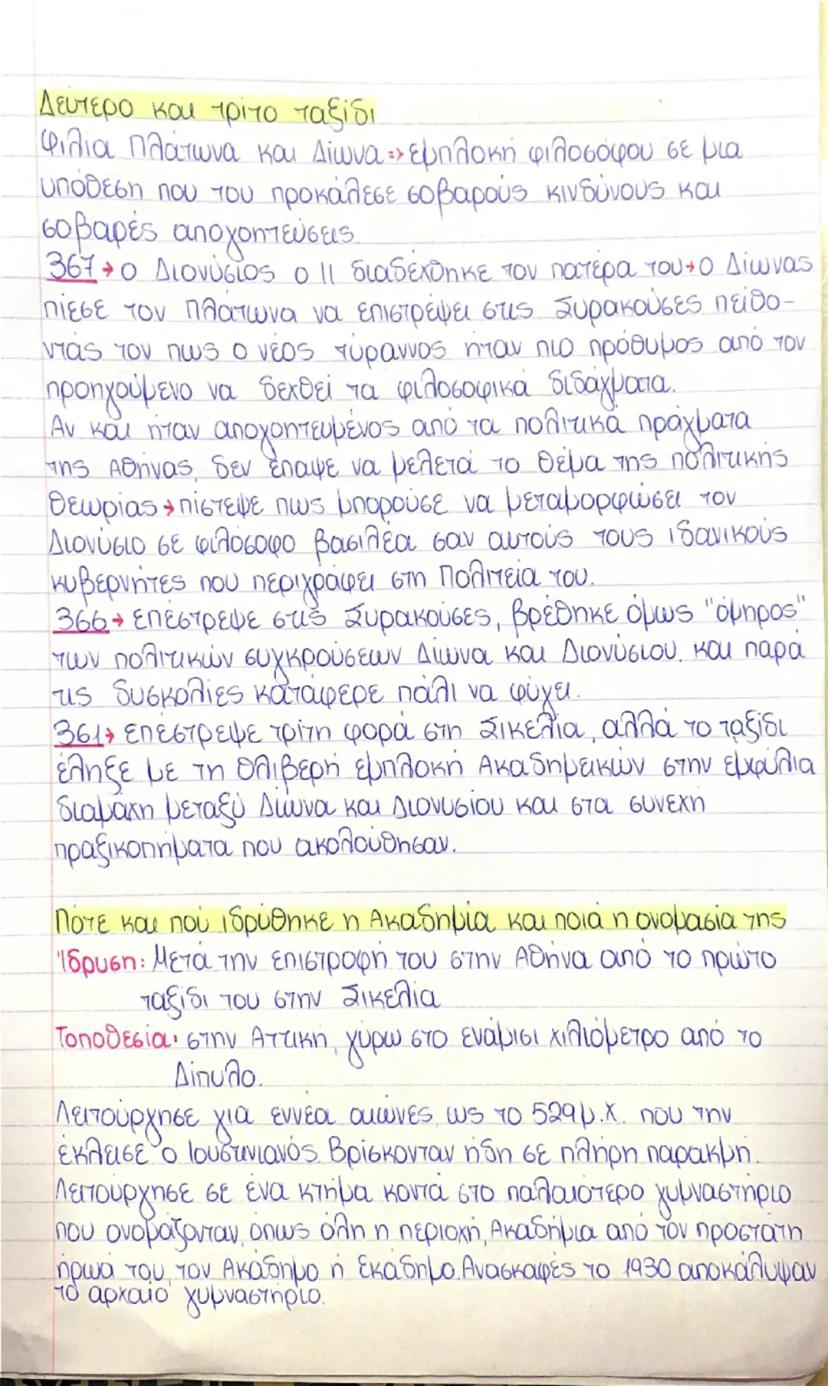 Δεύτερο και τρίτο ταξίδι
Φιλία Πλάτωνα και Δίωνα ⇒ εμπλοκή φιλοσόφου σε μια
υπόθεση που του προκάλεσε σοβαρούς κινδύνους και
σοβαρές απογοητεύσεις.
367 → ο Διονύσιος ο ΙΙ διαδέχθηκε τον πατέρα του → ο Δίωνας
πίεσε τον Πλάτωνα να επιστρέψει στις Συρακούσες πείθο-
ντάς τον πως ο νέος τύραννος ήταν πιο πρόθυμος από τον
προηγούμενο να δεχθεί τα φιλοσοφικά διδάγματα.
Αν και ήταν απογοητευμένος από τα πολιτικά πράγματα
της Αθήνας, δεν έπαψε να μελετά το θέμα της πολιτικής
θεωρίας → πίστεψε πως μπορούσε να μεταμορφώσει τον
Διονύσιο σε φιλόσοφο βασιλέα σαν αυτούς τους ιδανικούς
κυβερνήτες που περιγράφει στη Πολιτεία του.
366 → επέστρεψε στις Συρακούσες, βρέθηκε όμως "όμηρος"
των πολιτικών συγκρούσεων Δίωνα και Διονύσιου. και παρά
τις δυσκολίες κατάφερε πάλι να φύγει.
361 → επέστρεψε τρίτη φορά στη Σικελία, αλλά το ταξίδι
έληξε με τη θλιβερή εμπλοκή Ακαδημεικών στην εμφύλια
διαμάχη μεταξύ Δίωνα και Διονυσίου και στα συνεχή
πραξικοπήματα που ακολούθησαν.
Πότε και πού ιδρύθηκε η Ακαδημία και ποιά η ονομασία της
Ίδρυση: Μετά την επιστροφή του στην Αθήνα από το πρώτο
ταξίδι του στην Σικελία
Τοποθεσία: στην Αττική, γύρω στο ενάμισι χιλιόμετρο από το
Δίπυλο.
Λειτούργησε για εννέα αιώνες, ως το 529 μ.Χ. που την
έκλεισε ο Ιουστινιανός. Βρίσκονταν ήδη σε πλήρη παρακμή.
Λειτούργησε σε ένα κτήμα κοντά στο παλαιότερο γυμναστήριο
που ονομάζονταν, όπως όλη η περιοχή, Ακαδήμια από τον προστάτη
ήρωά του, τον Ακάδημο ή Εκάδημο. Ανασκαφές το 1930 αποκάλυψαν
το αρχαίο γυμναστήριο.